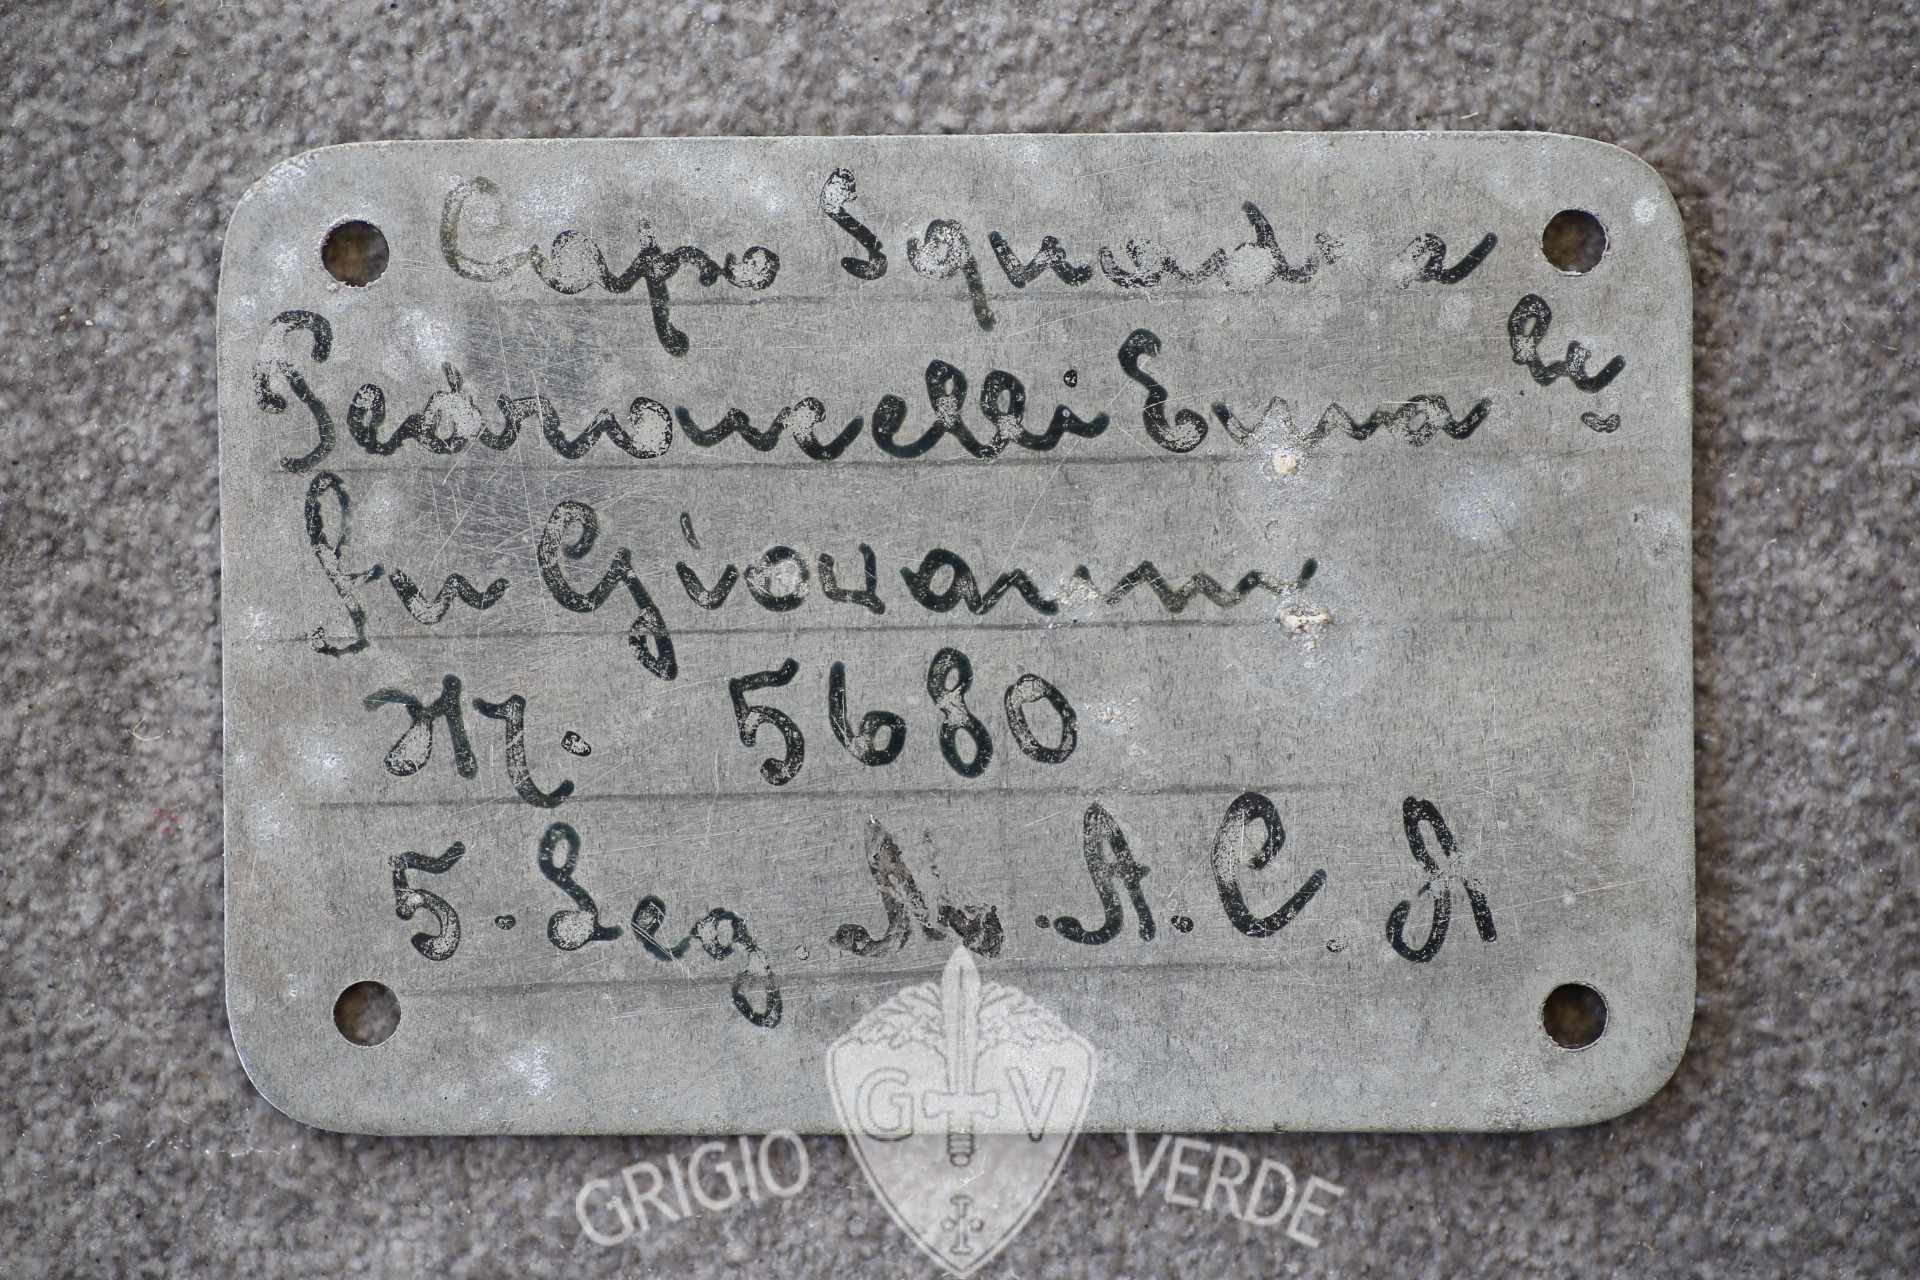 Capo Squadra
Pedroncelli
fu Giovanni
Nr. 5680
5. Leg. M.A.C.A
G V
GRIGIO VERDE